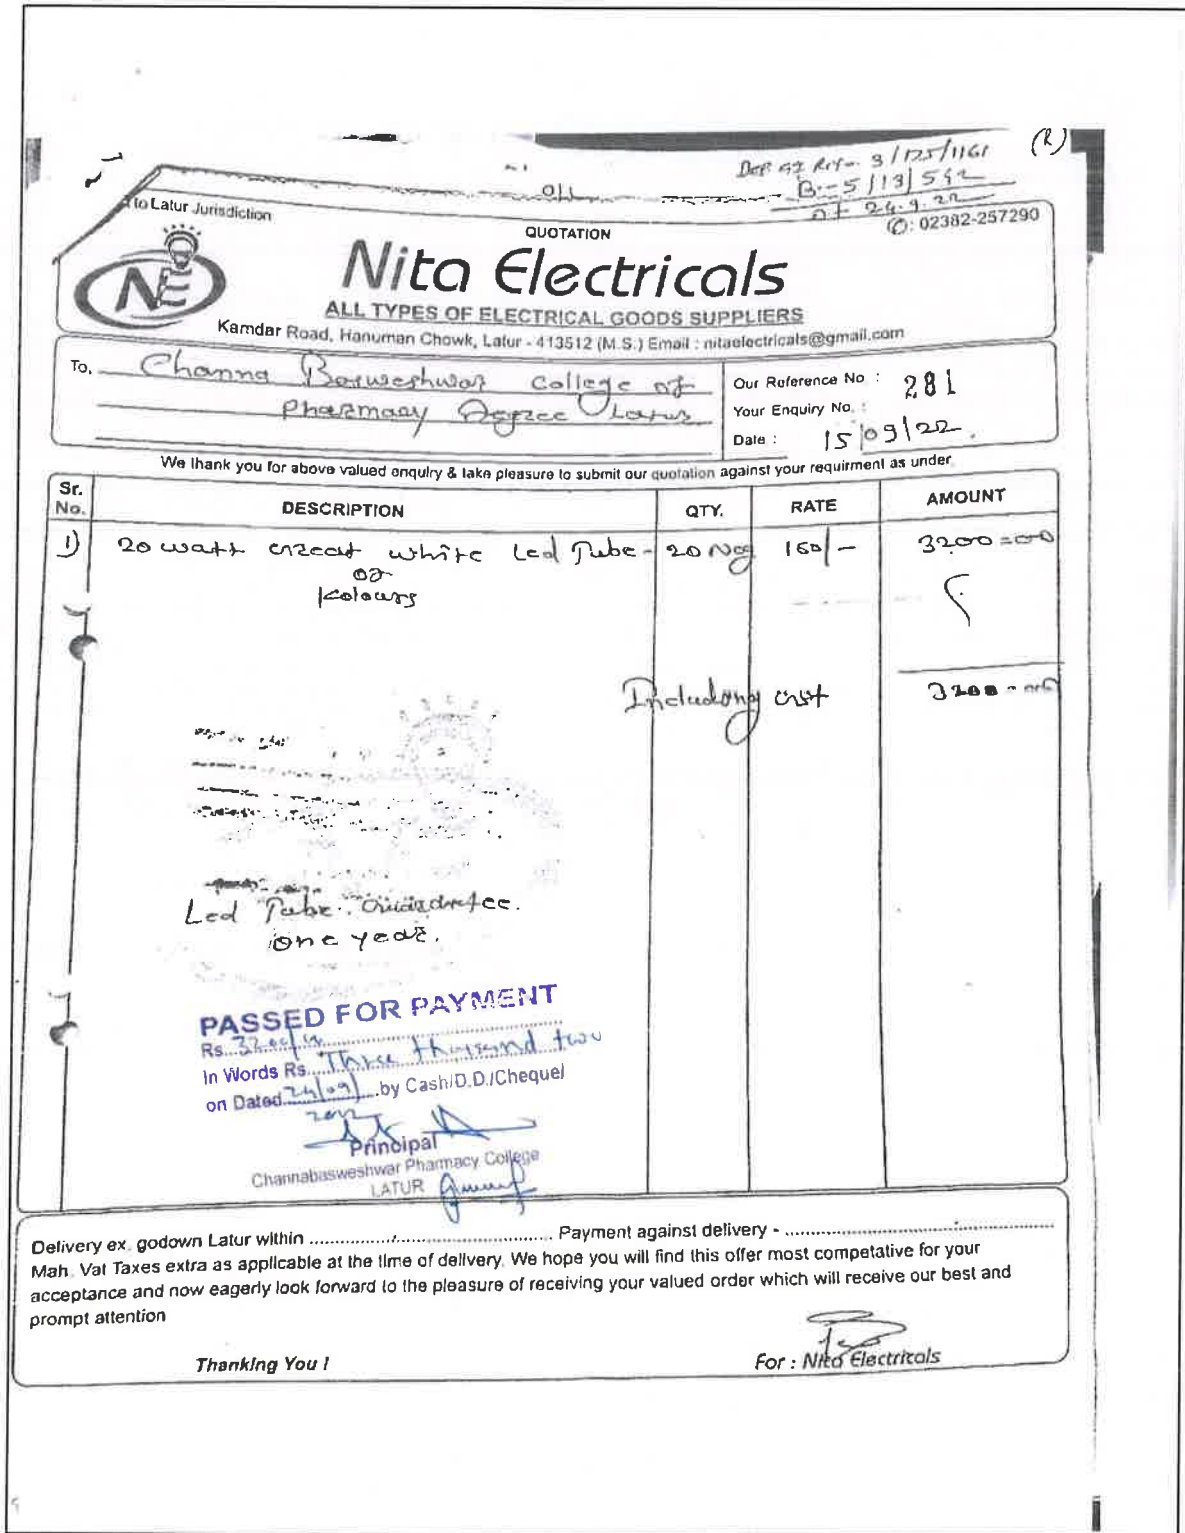 (R)
3/125/1161
B:-5/13/542
24.9.22
to Latur Jurisdiction
QUOTATION
✆: 02382-257290
NE
Nita Electricals
ALL TYPES OF ELECTRICAL GOODS SUPPLIERS
Kamdar Road, Hanuman Chowk, Latur - 413512 (M.S.) Email : nitaelectricals@gmail.com
To, Channa Basweshwar College of
Pharmacy Degree Latur
Our Reference No : 281
Your Enquiry No. :
Date : 15/09/22.
We thank you for above valued enquiry & take pleasure to submit our quotation against your requirment as under
Sr. No. DESCRIPTION QTY. RATE AMOUNT
1) 20 watt white Led Tube - 20 Nos 160/- 3200=00
or
Kolours
Including 3200=00
Led Tube Guarantee.
one year.
PASSED FOR PAYMENT
Rs. 3200/-
In Words Rs. Three thousand two
on Dated 24/09/ by Cash/D.D./Cheque
2022
Principal
Channabasweshwar Pharmacy College
LATUR
Delivery ex. godown Latur within .......... Payment against delivery - ..........
Mah. Vat Taxes extra as applicable at the time of delivery. We hope you will find this offer most competative for your
acceptance and now eagerly look forward to the pleasure of receiving your valued order which will receive our best and
prompt attention
Thanking You !
For : Nita Electricals